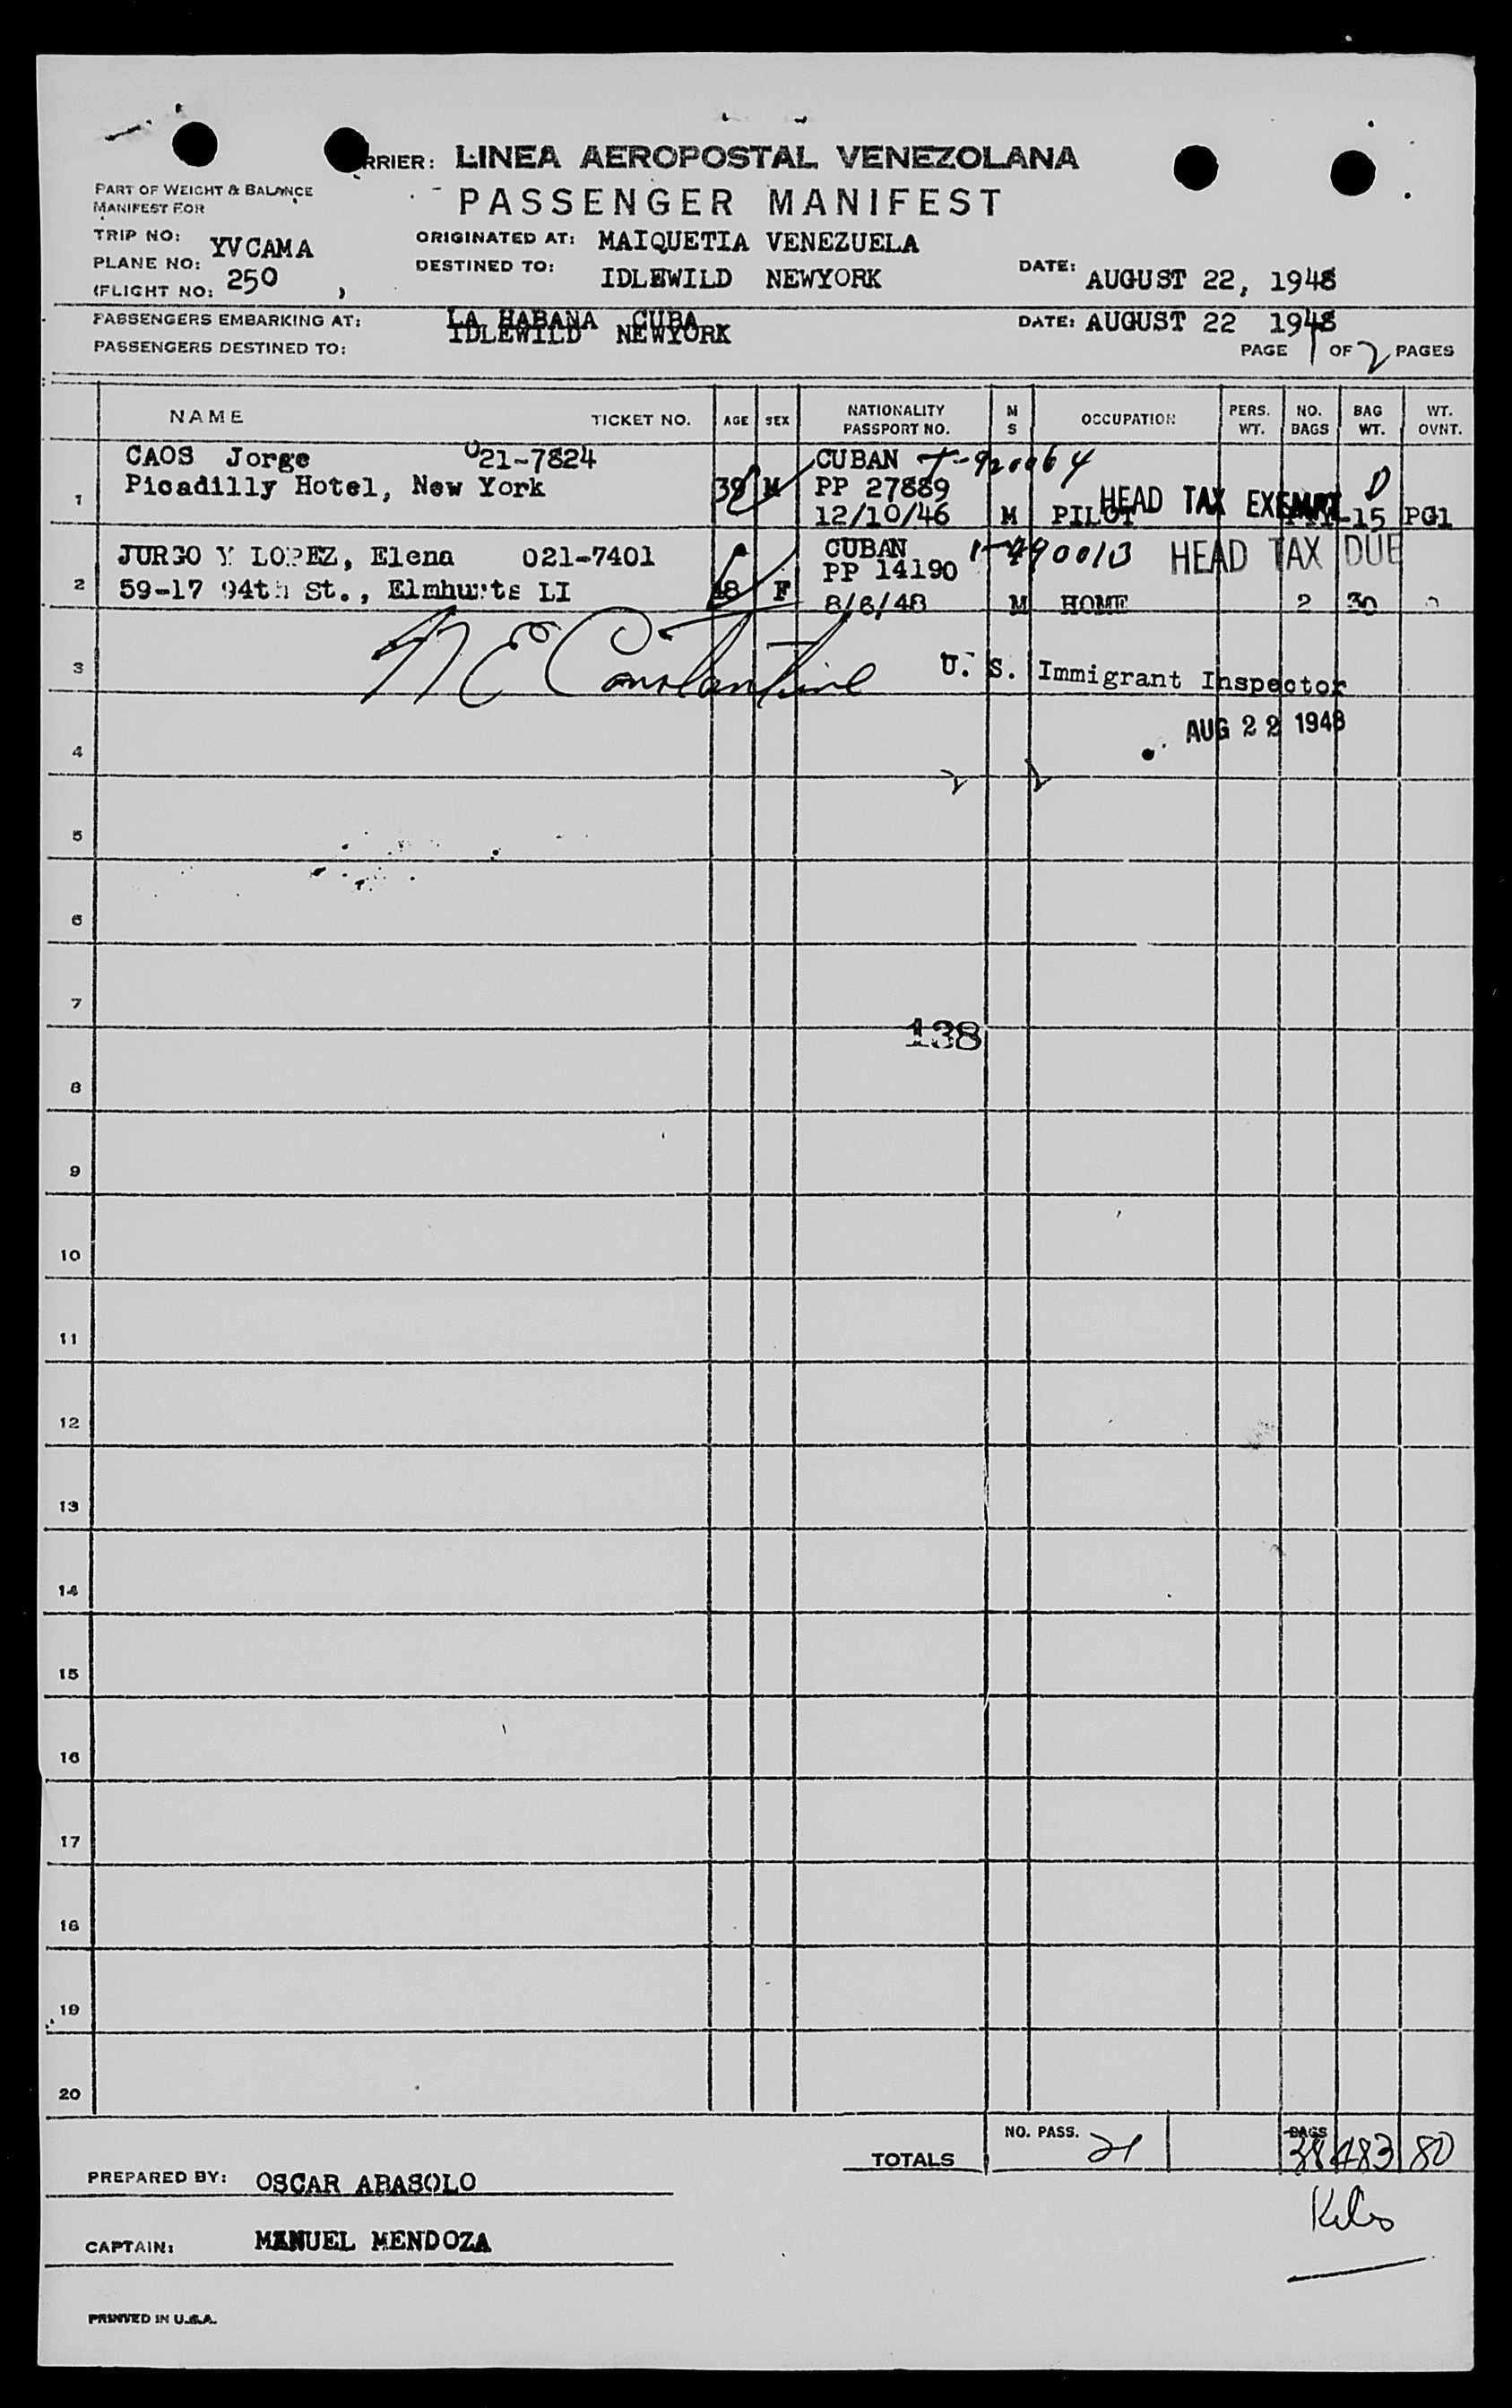 RRIER: LINEA AEROPOSTAL VENEZOLANA
PART OF WEIGHT & BALANCE
MANIFEST FOR
PASSENGER MANIFEST
TRIP NO: YVCAMA
ORIGINATED AT: MAIQUETIA VENEZUELA
PLANE NO:
DESTINED TO: IDLEWILD NEWYORK
DATE: AUGUST 22, 1948
(FLIGHT NO: 250 )
PASSENGERS EMBARKING AT: LA HABANA CUBA
DATE: AUGUST 22 1948
PASSENGERS DESTINED TO: IDLEWILD NEWYORK
PAGE 1 OF 2 PAGES
NAME TICKET NO. AGE SEX NATIONALITY PASSPORT NO. M S OCCUPATION PERS. WT. NO. BAGS BAG WT. WT. OVNT.
CAOS Jorge 021-7824 CUBAN T-920064
1 Picadilly Hotel, New York 39 M PP 27889 HEAD TAX EXEMPT
12/10/46 M PILOT 15 PG1
JURGO Y LOPEZ, Elena 021-7401 CUBAN HEAD TAX DUE
2 59-17 94th St., Elmhurts LI 48 F PP 14190
8/6/48 M HOME 2 30
N E Constantine U. S. Immigrant Inspector
3
AUG 22 1948
4
5
6
7
138
8
9
10
11
12
13
14
15
16
17
18
19
20
TOTALS NO. PASS. 21 BAGS 38 483 80
PREPARED BY: OSCAR ABASOLO
Kilos
CAPTAIN: MANUEL MENDOZA
PRINTED IN U.S.A.